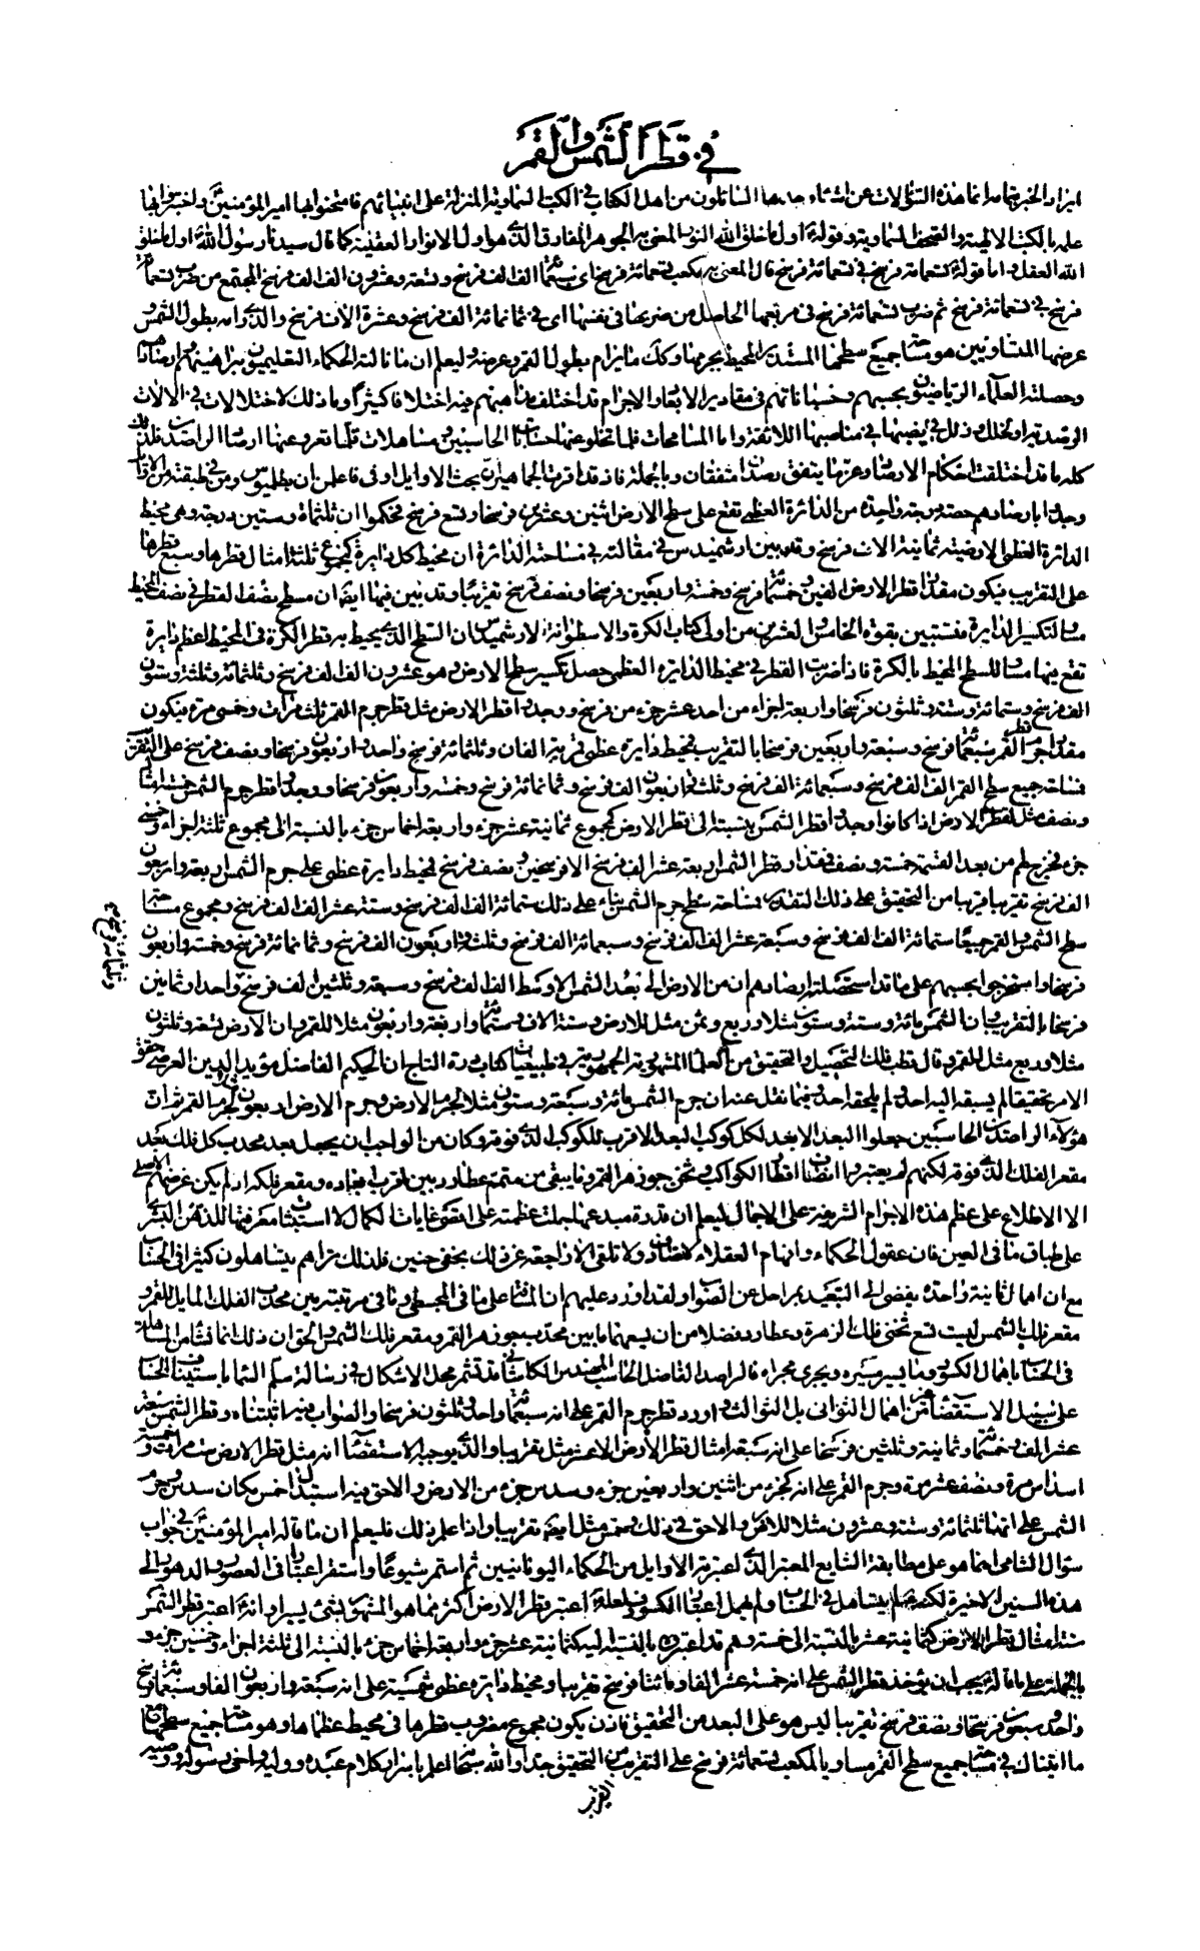 في قطر الشمس والقمر
هذه السؤالات عن اشياء السائلون من اهل الكتاب في الكتب السماوية المنزلة على انبيائهم فامتحنوا بها امير المؤمنين واختبروا بها
علمه بالكتب الالهية والصحف السماوية وقوله اول ما خلق الله النور المعني به الجوهر المفارق الذي هو اول الانوار العقلية كما قال سيدنا رسول الله اول ما خلق
الله العقل واما قوله تسعمائة فرسخ في تسعمائة فرسخ قال المعني به مكعب تسعمائة فرسخ اي سبعمائة الف الف فرسخ وتسعة وعشرون الف الف فرسخ المجتمع من ضرب تسعمائة
فرسخ في تسعمائة فرسخ ثم ضرب تسعمائة فرسخ في مربعها الحاصل من ضربها في نفسها اي في ثمانمائة الف فرسخ وعشرة الاف فرسخ والذي يرام بطول الشمس و
عرضها المتساويين هو مساحة جميع سطحها المستدير المحيط بجرمها وكذلك ما يرام بطول القمر وعرضه وليعلم ان ما نالته الحكماء التعليميون ببراهينهم وارصادها
وحصلته العلماء الرياضيون بحسبهم وحساباتهم في مقادير الابعاد والاجرام قد اختلف مذاهبهم فيه اختلافا كثيرا وما ذلك لاختلالات في الالات
الرصدية او لخلل وزلل في نصبها في مناصبها اللائقة واما المسامحات قلما تخلو عنها حسابات الحاسبين ومساهلات قلما تعرو عنها ارصاد الراصدين فلذلك
كله ما قد اختلفت احكام الارصاد وعز ما يتفق رصدان متفقان وبالجملة فاذ قد اقرت الجماهير ان بحث الاوايل اوفى فاعلمن ان بطلميوس ومن في طبقته من الاوايل
وجدوا بارصادهم حصة درجة واحدة من الدائرة العظمى تقع على سطح الارض اثنين وعشرين فرسخا وتسع فرسخ فحكموا ان ثلثمائة وستين درجة وهي محيط
الدائرة العظمى الارضية ثمانية الاف فرسخ وقد بين ارشميدس في مقالته في مساحة الدائرة ان محيط كل دايرة كمجموع ثلثة امثال قطرها وسبع قطرها
على التقريب فيكون مقدار قطر الارض الفين وخمسمائة فرسخ وخمسة واربعين فرسخا ونصف فرسخ تقريبا وقد بين فيها ايضا ان مسطح نصف القطر في نصف المحيط
مساو لتكسير الدايرة فتستبين بقوة الخامس والعشرين من اولى كتاب الكرة والاسطوانة لارشميدس ان السطح الذي يحيط به قطر الكرة في المحيط اعظم دايرة
تقع فيها مساو للسطح المحيط بالكرة فاذا ضرب القطر في محيط الدايرة العظمى حصل تكسير سطح الارض وهو عشرون الف الف فرسخ وثلثمائة وثلثة وستون
الف فرسخ وستمائة وستة وثلثون فرسخا واربعة اجزاء من احد عشر جزء من فرسخ ووجدوا قطر الارض مثل قطر جرم القمر ثلث مرات وخمسي مرة فيكون
مقدار قطر جرم القمر سبعمائة فرسخ وسبعة واربعين فرسخا بالتقريب فمحيط دايرة عظمى قمرية الفان وثلثمائة فرسخ واحد واربعون فرسخا ونصف فرسخ على التقريب
فمساحة جميع سطح القمر الف الف فرسخ وسبعمائة الف فرسخ وثلثة واربعون الف فرسخ وثمانمائة فرسخ وخمسة واربعون فرسخا ووجدوا قطر جرم الشمس خمسة امثال
ونصف مثل لقطر الارض اذ كانوا وجدوا قطر الشمس بنسبته الى قطر الارض كمجموع ثمانية عشر جزء واربعة اخماس جزء بالنسبة الى مجموع ثلثة اجزاء وخمسي
جزء فخرج لهم من بعد القسمة خمسة ونصف فمقدار قطر الشمس اربعة عشر الف فرسخ الا فرسخين ونصف فرسخ فمحيط دايرة عظمى على جرم الشمس اربعة واربعون
الف فرسخ تقريبا قريبا من التحقيق على ذلك التقدير فمساحة سطح جرم الشمس بناء على ذلك ستمائة الف الف فرسخ وستة عشر الف الف فرسخ ومجموع مساحة
سطح الشمس والقمر جميعا ستمائة الف الف فرسخ وسبعة عشر الف الف فرسخ وسبعمائة الف فرسخ وثلثة واربعون الف فرسخ وثمانمائة فرسخ وخمسة واربعون
فرسخا واستخرجوا بحسبهم على ما قد استحصلته ارصادهم ان من الارض الى بعد الشمس الاوسط الف الف فرسخ وسبعة وثلثين الف فرسخ واحدا وثمانين
فرسخا بالتقريب وان الشمس مائة وستة وستون مثلا وربع وثمن مثل للارض وستة الاف وستمائة واربعة واربعون مثلا للقمر وان الارض تسعة وثلثون
مثلا وربع مثل للقمر وقال قطب فلك التحصيل والتحقيق من العلماء المشهورية الجمهورية في طبيعيات كتاب درة التاج ان الحكيم الفاضل مؤيد الدين العرضي حقق
الامر تحقيقا لم يسبقه اليه احد ولم يلحقه احد فيما نقل عنه ان جرم الشمس مائة وسبعة وستون مثلا لجرم الارض وجرم الارض اربعون لجرم القمر ثم ان
هؤلاء الراصدين الحاسبين جعلوا البعد الابعد لكل كوكب البعد الاقرب للكوكب الذي فوقه وكان من الواجب ان يجعل بعد محدب كل فلك بعد
مقعر الفلك الذي فوقه لكنهم لم يعتبروا انصاف اقطار الكواكب وثخن جوزهر القمر وما يبقى من متمم عطارد بين اقرب ابعاده ومقعر فلكه اذ لم يكن غرضهم الاصلي
الا الاطلاع على عظم هذه الاجرام الشريفة على الاجمال ليعلم ان قدرة مبدعها جلت عظمته على اقصى غايات الكمال لا استيثاق معرفتها للذهن البشري
على طباق ما في العين فان عقول الحكماء وافهام العقلاء لاتصادف ولا تلقى الا راجعة عن ذلك بخفي حنين فلذلك تراهم يتساهلون كثيرا في الحساب
مع ان اهمال ثانية واحدة يفضي الى التبعيد بمراحل عن الصواب ولقد اورد عليهم ان المسافة على ما في المجسطي وما في مرتبته بين محدب الفلك المايل للقمر و
مقعر فلك الشمس ليست تسع ثخني فلك الزهرة وعطارد فضلا من ان يسعهما ما بين محدب جوزهر القمر ومقعر فلك الشمس والحق ان ذلك انما نشأ من المساهلة
في الحساب باهمال الكسور وما يسير مسيره ويجري مجراه فالراصد الفاضل الحاسب المهندس الكاشاني قد تشمر محل الاشكال في رسالة سلم السماء باستيناف الحساب
على سبيل الاستقصاء من اهمال الثواني بل الثوالث واورد قطر جرم القمر على انه سبعمائة واحد وثلثون فرسخا والصواب فيه ما اثبتناه وقطر الشمس سبعة
عشر الف وخمسمائة وثمانية وثلثين فرسخا على انه سبعة امثال قطر الارض الا عشر مثل تقريبا والذي يوجبه الاستقصاء انه مثل قطر الارض ست مرات وخمسة
اسداس مرة ونصف عشر مرة وجرم القمر على انه كجزء من اثنين واربعين جزء وسدس جزء من الارض والاحق فيه استبدال خمس مكان سدس وجرم
الشمس على انه ثلثمائة وستة وعشرون مثلا للارض والاحق في ذلك وخمس مثل ايضا تقريبا واذا علم ذلك فليعلم ان ما قاله امير المؤمنين في جواب
سؤال الشامي انما هو على مطابقة الشايع المعتبر الذي اعتبرته الاوايل من الحكماء اليونانيين ثم استمر شيوعا واستقر اعتبارا في العصور والدهور الى
هذه السنين الاخيرة لكنه لم يتساهل في الحساب ولم يهمل اعتبار الكسور فلعله اعتبر قطر الارض اكثر مما هو المشهور بشئ يسير او انه اعتبر قطر الشمس
ستة امثال قطر الارض كثمانية عشر بالنسبة الى خمسة وهم قد اعتبروه بالنسبة اليه كثمانية عشر جزء واربعة اخماس جزء بالنسبة الى ثلثة اجزاء وخمسين جزء و
بالجملة على ما قاله يجب ان يؤخذ قطر الشمس على انه خمسة عشر الفا ومائتا فرسخ تقريبا ومحيط دايرة عظمى شمسية على انه سبعة واربعون الفا وسبعمائة فرسخ
واحد وسبعون فرسخا ونصف فرسخ تقريبا ليس هو على البعد من التحقيق فاذن يكون مجموع مضروب قطرها في محيط عظماها وهو مساحة جميع سطحها مع
ما ابقيناك في مساحة جميع سطح القمر مساويا لمكعب تسعمائة فرسخ على التقريب من التحقيق جدا والله سبحانه اعلم باسرار كلام عبده ووليه واخي رسوله ووصيه